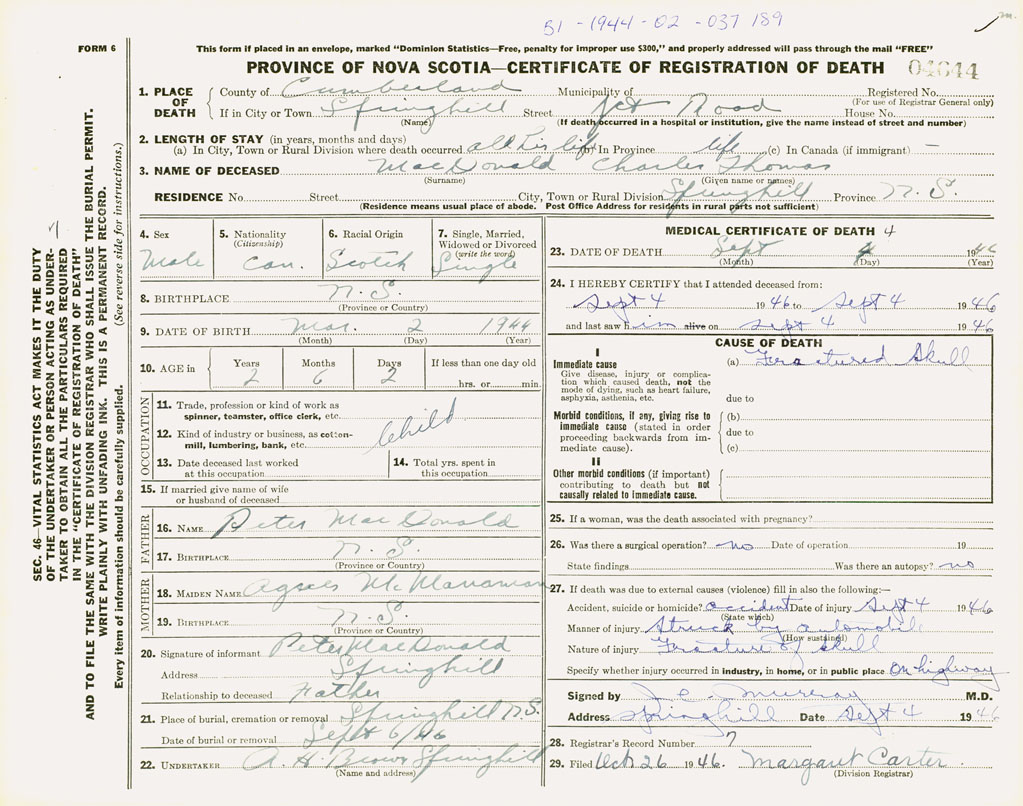 51 - 1944 - 02 - 037189
FORM 6
This form if placed in an envelope, marked "Dominion Statistics—Free, penalty for improper use $300," and properly addressed will pass through the mail "FREE"
PROVINCE OF NOVA SCOTIA—CERTIFICATE OF REGISTRATION OF DEATH 04644
1. PLACE OF DEATH County of Cumberland Municipality of Registered No.
(For use of Registrar General only)
If in City or Town Springhill Street Jct Road House No.
(Name) (If death occurred in a hospital or institution, give the name instead of street and number)
2. LENGTH OF STAY (in years, months and days)
(a) In City, Town or Rural Division where death occurred all his life (b) In Province life (c) In Canada (if immigrant) —
3. NAME OF DECEASED MacDonald Charles Thomas
(Surname) (Given name or names)
RESIDENCE No. Street City, Town or Rural Division Springhill Province N.S.
(Residence means usual place of abode. Post Office Address for residents in rural parts not sufficient)
4. Sex Male
5. Nationality (Citizenship) Can.
6. Racial Origin Scotch
7. Single, Married, Widowed or Divorced (write the word) Single
8. BIRTHPLACE N.S.
(Province or Country)
9. DATE OF BIRTH Mar. 2 1944
(Month) (Day) (Year)
10. AGE in Years 2 Months 6 Days 2 If less than one day old hrs. or min.
OCCUPATION
11. Trade, profession or kind of work as spinner, teamster, office clerk, etc.
Child
12. Kind of industry or business, as cotton-mill, lumbering, bank, etc.
13. Date deceased last worked at this occupation
14. Total yrs. spent in this occupation
15. If married give name of wife or husband of deceased
FATHER
16. NAME Peter MacDonald
17. BIRTHPLACE N.S.
(Province or Country)
MOTHER
18. MAIDEN NAME Agnes McManaman
19. BIRTHPLACE N.S.
(Province or Country)
20. Signature of informant Peter MacDonald
Address Springhill
Relationship to deceased Father
21. Place of burial, cremation or removal Springhill N.S.
Date of burial or removal Sept 6/46
22. UNDERTAKER A. H. Brown Springhill
(Name and address)
MEDICAL CERTIFICATE OF DEATH
23. DATE OF DEATH Sept 4 1946
(Month) (Day) (Year)
24. I HEREBY CERTIFY that I attended deceased from:
Sept 4 1946 to Sept 4 1946
and last saw him alive on Sept 4 1946
CAUSE OF DEATH
I
Immediate cause (a) Fractured Skull
Give disease, injury or complication which caused death, not the mode of dying, such as heart failure, asphyxia, asthenia, etc.
due to
Morbid conditions, if any, giving rise to immediate cause (stated in order proceeding backwards from immediate cause).
(b)
due to
(c)
II
Other morbid conditions (if important) contributing to death but not causally related to immediate cause.
25. If a woman, was the death associated with pregnancy?
26. Was there a surgical operation? no Date of operation 19
State findings Was there an autopsy? no
27. If death was due to external causes (violence) fill in also the following:—
Accident, suicide or homicide? accident Date of injury Sept 4 1946
(State which)
Manner of injury Struck by automobile
(How sustained)
Nature of injury Fracture of skull
Specify whether injury occurred in industry, in home, or in public place On highway
Signed by J. E. Murray M.D.
Address Springhill Date Sept 4 1946
28. Registrar's Record Number 7
29. Filed Oct 26 1946. Margaret Carter
(Division Registrar)
SEC. 46—VITAL STATISTICS ACT MAKES IT THE DUTY
OF THE UNDERTAKER OR PERSON ACTING AS UNDER-
TAKER TO OBTAIN ALL THE PARTICULARS REQUIRED
IN THE "CERTIFICATE OF REGISTRATION OF DEATH"
AND TO FILE THE SAME WITH THE DIVISION REGISTRAR WHO SHALL ISSUE THE BURIAL PERMIT.
WRITE PLAINLY WITH UNFADING INK. THIS IS A PERMANENT RECORD.
Every item of information should be carefully supplied. (See reverse side for instructions.)